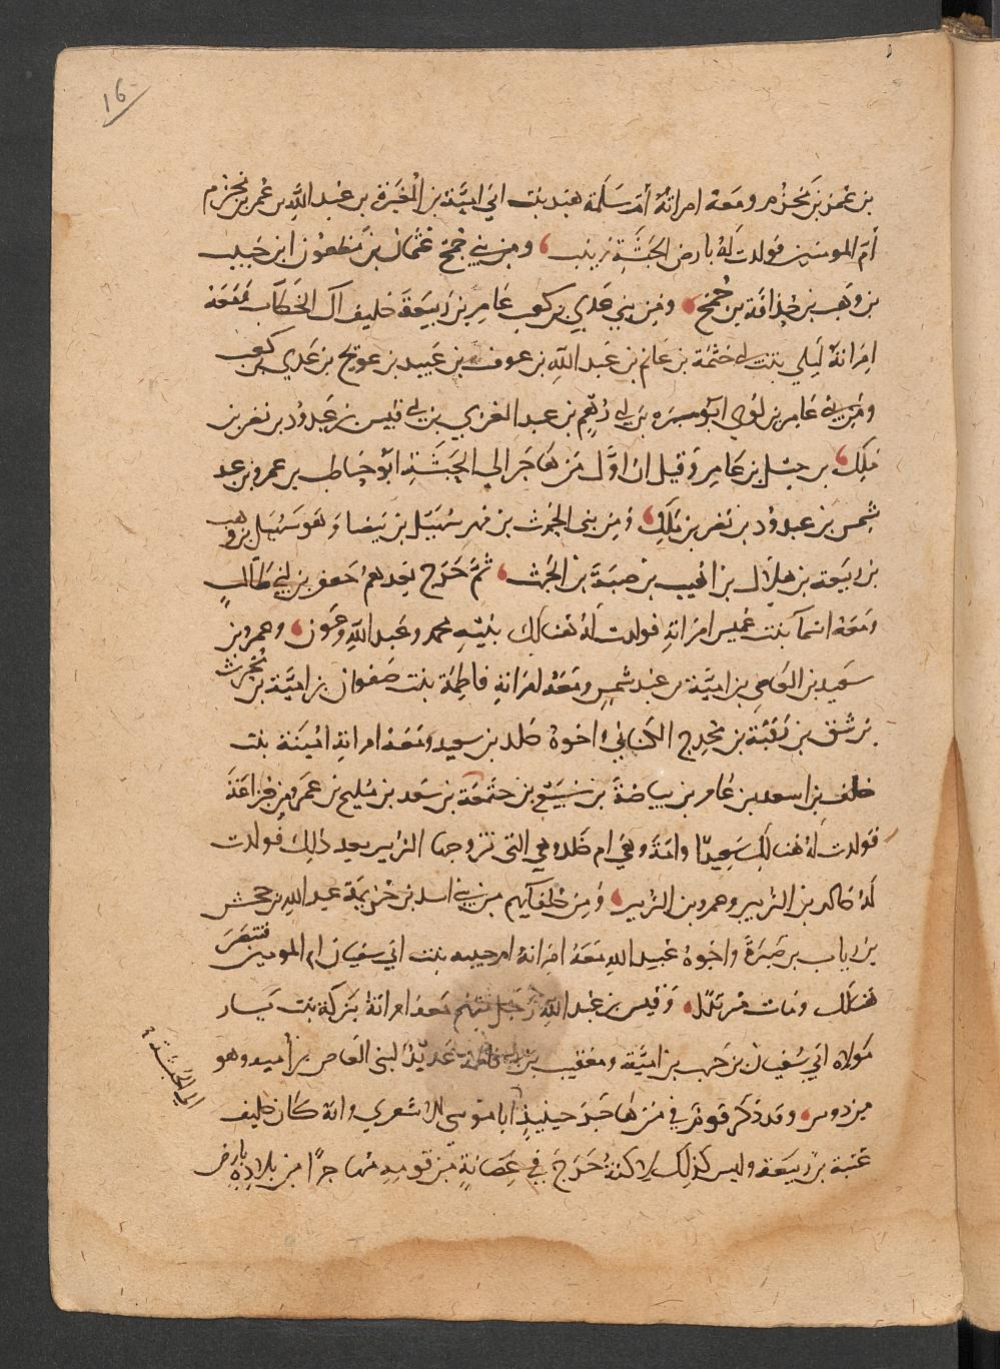 16
بن عمر بن مخزوم ومعه امراته أم سلمة هند بنت ابي امية بن المغيرة بن عبد الله بن عمر بن مخزوم
أم المومنين فولدت له بارض الحبشة زينب، ومن بني جمح عثمان بن مظعون ابن حبيب
بن وهب بن حذافة بن جمح، ومن بني عدي بن كعب عامر بن ربيعة حليف آل الخطاب معه
امراته ليلي بنت ابي حثمة بن غانم بن عبد الله بن عوف بن عبيد بن عويج بن عدي بن كعب
ومن بني عامر بن لوي ابو سبره بن ابي رهم بن عبد العزي بن ابي قيس بن عبدود بن نصر بن
ملك، بن حسل بن عامر وقيل ان اول من هاجر الى الحبشة ابو حاطب بن عمرو بن عبد
شمس بن عبدود بن نصر بن ملك، ومن بني الحرث بن فهر سهيل بن بيضا وهو سهيل بن وهب
بن ربيعة بن هلال بن اهيب بن ضبة بن الحرث، ثم خرج بعدهم جعفر بن ابي طالب
ومعه اسما بنت عميس امراته فولدت له هنالك بنيه محمد وعبد الله وعون، وعمرو بن
سعيد بن العاصي بن امية بن عبد شمس ومعه امراته فاطمة بنت صفوان بن امية بن محرث
بن شق بن رقبة بن مخدج الكناني واخوه خلد بن سعيد ومعه امراته امينة بنت
خلف بن اسعد بن عامر بن بياضة بن سبيع بن جثمعة بن سعد بن مليح بن عمرو من خزاعة
فولدت له هنالك سعيدا وامة وهي ام خلد وهي التي تزوجها الزبير بعد ذالك فولدت
له خالد بن الزبير وعمرو بن الزبير، ومن حلفايهم من بني اسد بن خزيمة عبد الله بن جحش
بن رياب بن صبرة واخوه عبيد الله معه امراته ام حبيبه بنت ابي سفيان ام المومنين فتنصر
هنالك ومات مرتدا، وقيس بن عبد الله رجل منهم معه امراته بركة بنت يسار
مولاه ابي سفيان بن حرب بن امية ومعيقيب بن ابي فاطمة عديد لبني العاص بن اميه وهو
من دوس، وقد ذكر قوم في من هاجر حينيذ ابا موسى الاشعري وانه كان حليف
عتبة بن ربيعة وليس كذلك لاكنه خرج في عصابة من قومه مهاجرا من بلاده بارض
الى الحبشة